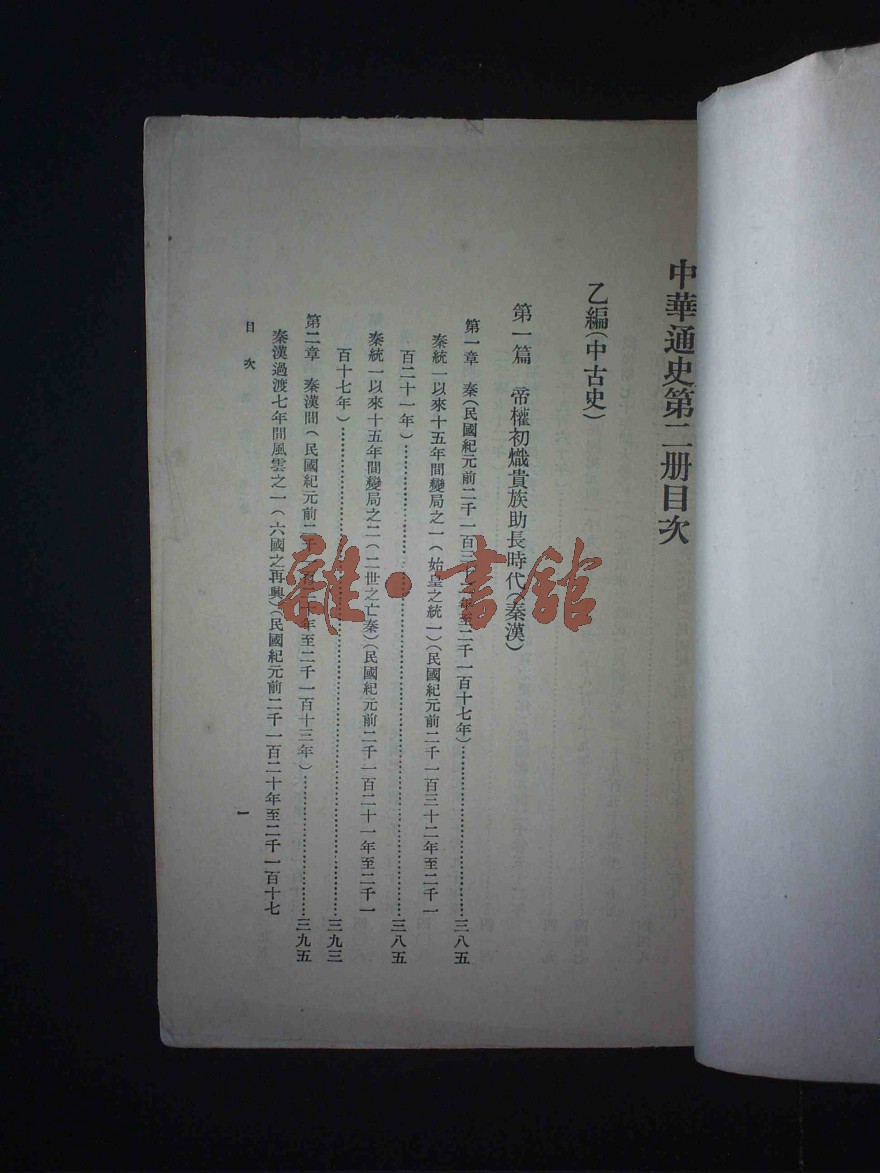 中華通史第二册目次
乙編(中古史)
第一篇 帝權初熾貴族助長時代(秦漢)
第一章 秦(民國紀元前二千一百三十二年至二千一百十七年)……三八五
秦統一以來十五年間變局之一(始皇之統一)(民國紀元前二千一百三十二年至二千一
百二十一年)……三八五
秦統一以來十五年間變局之二(二世之亡秦)(民國紀元前二千一百二十一年至二千一
百十七年)……三九三
第二章 秦漢間(民國紀元前二千一百二十年至二千一百十三年)……三九五
秦漢過渡七年間風雲之一(六國之再興)(民國紀元前二千一百二十年至二千一百十七
目次
一
雜·書館